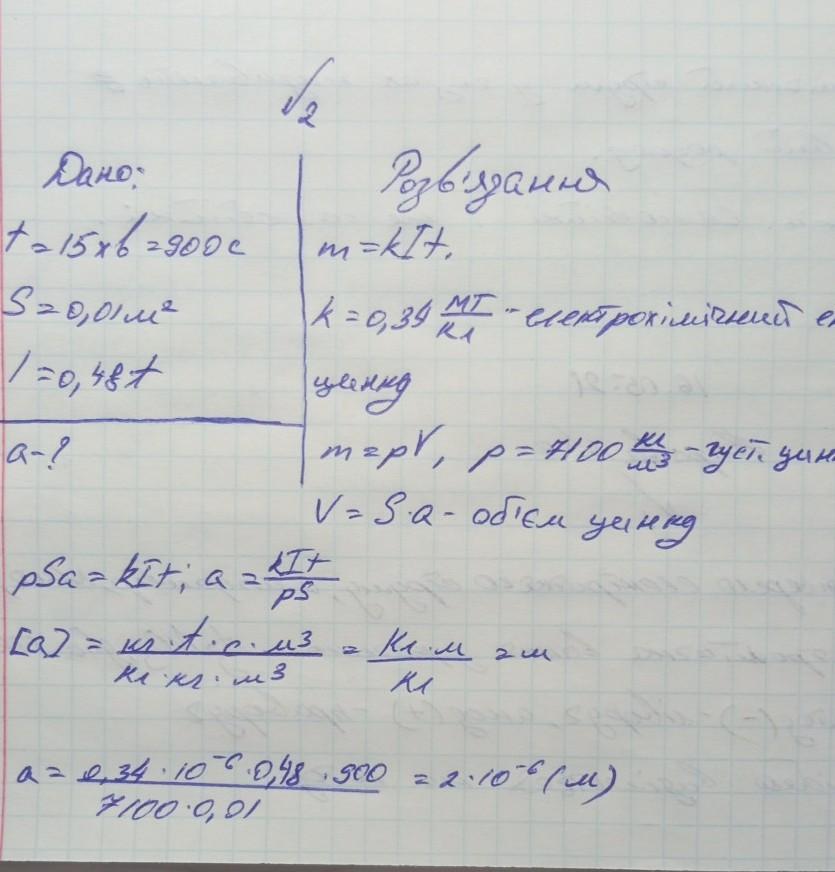 √2
Дано:
t = 15 хв = 900 с
S = 0,01 м²
I = 0,48 t
a - ?
Розв'язання
m = kIt,
k = 0,34 мг/Кл - електрохімічний
цинку
m = ρV, ρ = 7100 кг/м³ - густ. цин
V = S·a - об'єм цинку
ρSa = kIt; a = kIt/ρS
[a] = кг·t·с·м³/Кл·кг·м³ = Кл·м/Кл = м
a = 0,34·10⁻⁶·0,48·900/7100·0,01 = 2·10⁻⁶ (м)